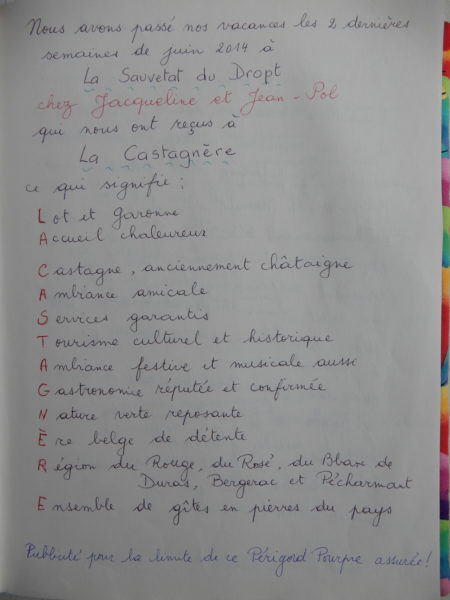 Nous avons passé nos vacances les 2 dernières
semaines de juin 2014 à
La Sauvetat du Dropt
chez Jacqueline et Jean-Pol
qui nous ont reçus à
La Castagnère
ce qui signifie :
Lot et Garonne
Accueil chaleureux
Castagne, anciennement châtaigne
Ambiance amicale
Services garantis
Tourisme culturel et historique
Ambiance festive et musicale aussi
Gastronomie réputée et confirmée
Nature verte reposante
Ère belge de détente
Région du Rouge, du Rosé, du Blanc de
Duras, Bergerac et Pécharmant
Ensemble de gîtes en pierres du pays
Publicité pour la limite de ce Périgord Pourpre assurée !